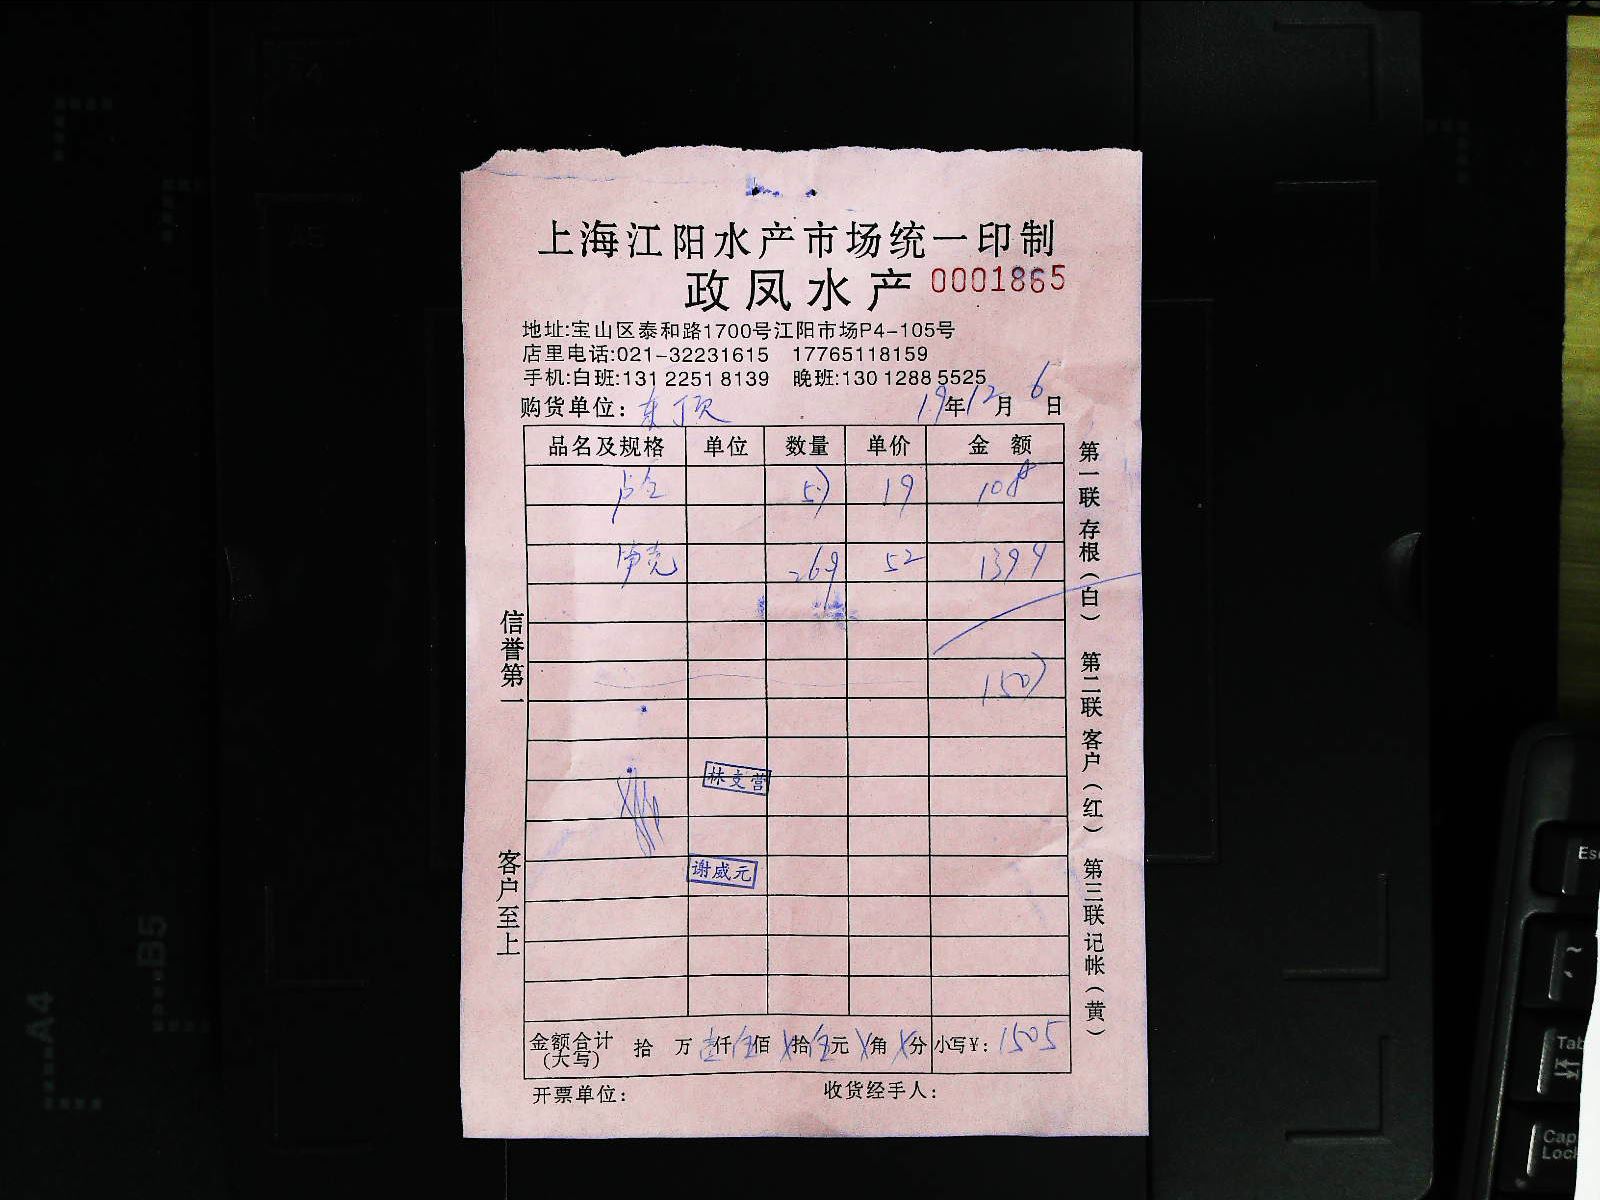 上海江阳水产市场统一印制
政凤水产 0001865
地址:宝山区泰和路1700号江阳市场P4-105号
店里电话:021-32231615 17765118159
手机:白班:131 2251 8139 晚班:130 1288 5525
购货单位: 19年12月6日
品名及规格 单位 数量 单价 金额
19 108
269 52 1399
林支营
谢威元
金额合计(大写) 拾 万 壹仟伍佰 拾伍元 角 分 小写¥: 1505
开票单位: 收货经手人:
信誉第一
客户至上
第一联存根(白)
第二联客户(红)
第三联记帐(黄)
A4
B5
A5
Esc
Tab
Caps Lock